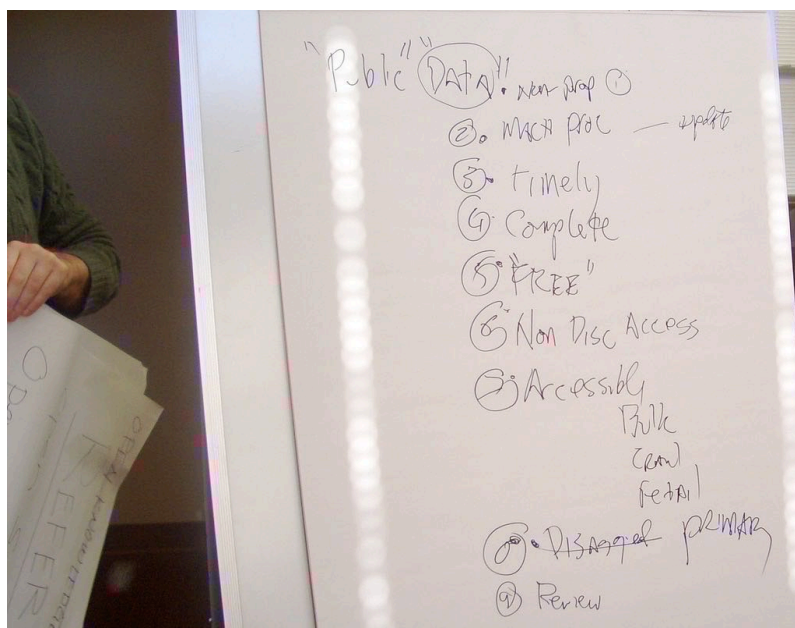 "Public" "DATA"
• Non prop ①
②. MACH proc — update
③. timely
④. Complete
⑤. "FREE"
⑥. Non Disc Access
⑦. Accessibly
Bulk
CRawl
Retail
⑧. Disaggred PRIMARY
⑨ Review
OPEN KNOWLEDGE
REFER